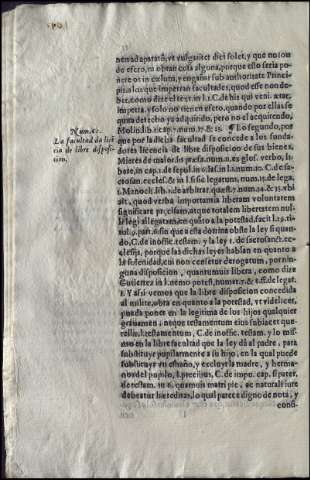 Num. 6.
La facultad de
de libre disposi-
cion.
nen adaparatũ, vt vulgariter dici solet, y que no son
de efeto, ni obran cosa alguna, porque esto seria po-
nere os in cœlum, y engañar sub authoritate Princi-
pis a los que impetran facultades, quod esse non de-
bet, como dize el text. in l. 1. C. de his qui veni. ætat.
impetra. y solo no tienen efeto, quando por ellas se
quita derecho ya adquirido, pero no el adquirendo,
Mol. lib. 2. cap. 7. num. 17. & 18. ¶ Lo segundo, por
que por la dicha facultad se concede a los funda-
dores licencia de libre disposicion de sus bienes,
Mieres de maior. in præfa. num. glos. verbo, li-
bate, in cap. 1. de sepul. in 6. Ias. in l. num. C. de sa-
crosan. eccles. & in l. si sic legatum, num. 15. de lega.
1. Manoch. lib. 1. de arbitrar. quæst. 7. num. 24. & 25. vbi
ait, quod verba importantia liberam voluntatem
significant præcisam, atque totalem libertatem nul-
li legi alligatam, en quãto a la potestad, facit l. 29. ti-
tulo 9. part. 6. sin que a esta dotrina obste la ley si quan-
do, C. de inoffic. testam. y la ley 1. de sacrosanct. ec-
clesijs, porque las dichas leyes hablan en quanto a
la solenidad, cui non censetur derogatum, por nin-
guna disposicion, quantumuis libera, como dize
Gutierrez in l. nemo potest, num. & ff. de legat.
1. Y assi vemos que la libre disposicion concedida
al milite, obra en quanto a la potestad, vt videlicet,
pueda poner en la legitima de los hijos qualquier
grauamen, neque testamentum eius subiacet que-
rellæ, l. testamentum, C. de inoffic. testam. y lo mis-
mo en la libre facultad que la ley dà al padre, para
substituyr pupilarmente a su hijo, en la qual puede
substituyr vn estraño, y excluyr la madre, y herma-
no del pupilo, l. precibus, C. de impu. cap. si pater,
de testam. in 6. quamuis matri pie, ac naturali iure
debeatur hæreditas, lo qual parece digno de nota, y
consi-